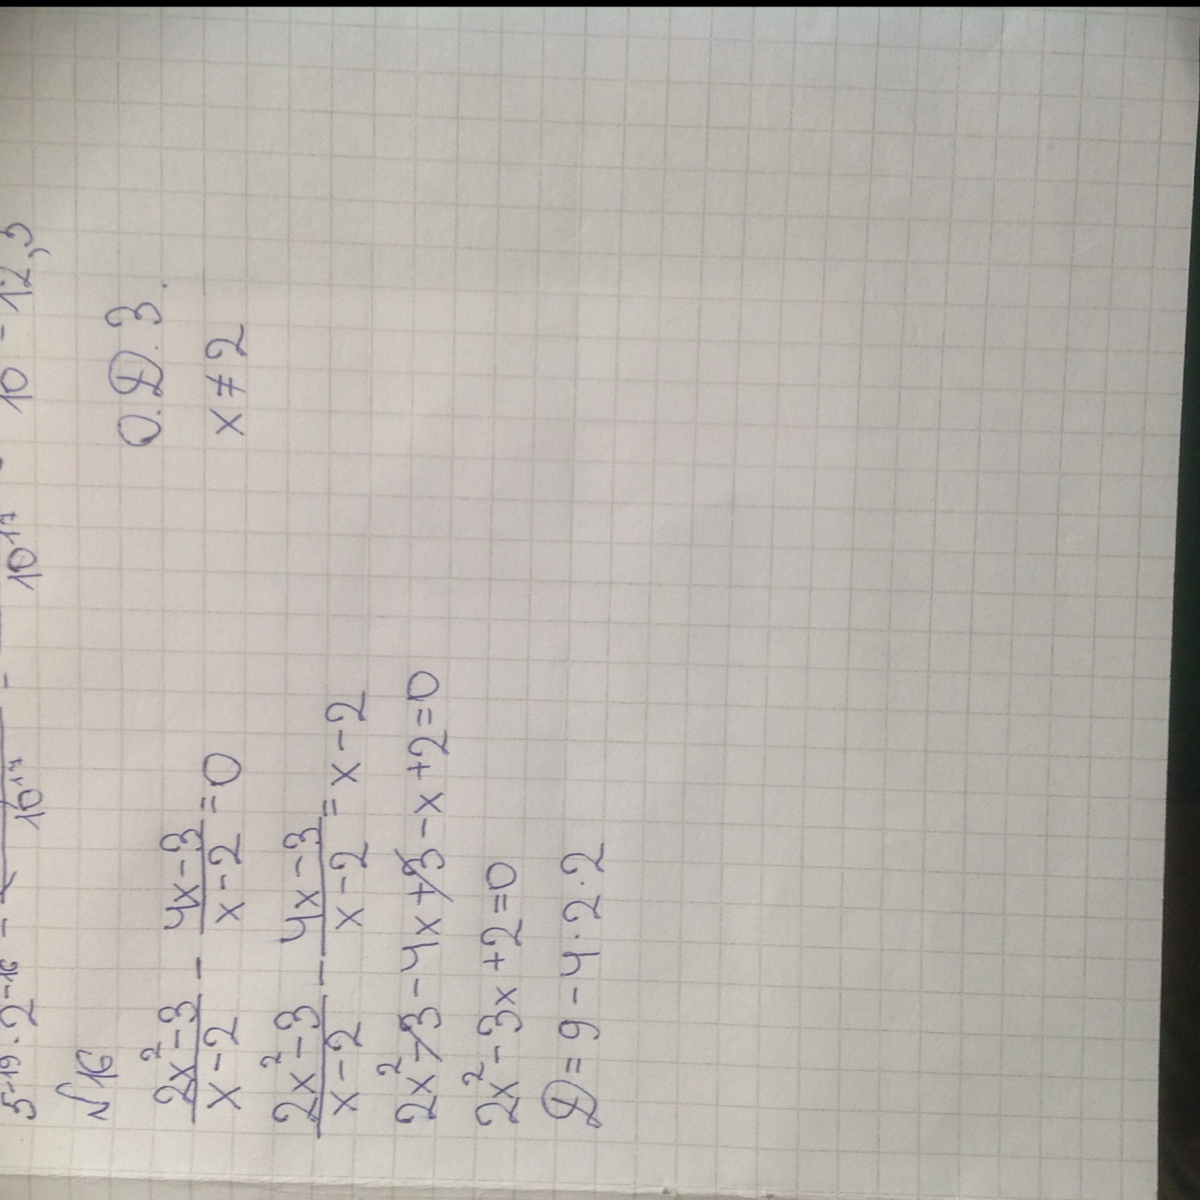 5⁻¹⁹ · 2⁻¹⁶ = 10¹⁷ = 10¹⁷ 10 - 12,5
№16
(2x² - 3)/(x - 2) - (4x - 3)/(x - 2) = 0
О.Д.З.
(2x² - 3)/(x - 2) - (4x - 3)/(x - 2) = x - 2
x ≠ 2
2x² - 3 - 4x + 3 - x + 2 = 0
2x² - 3x + 2 = 0
Д = 9 - 4 · 2 · 2